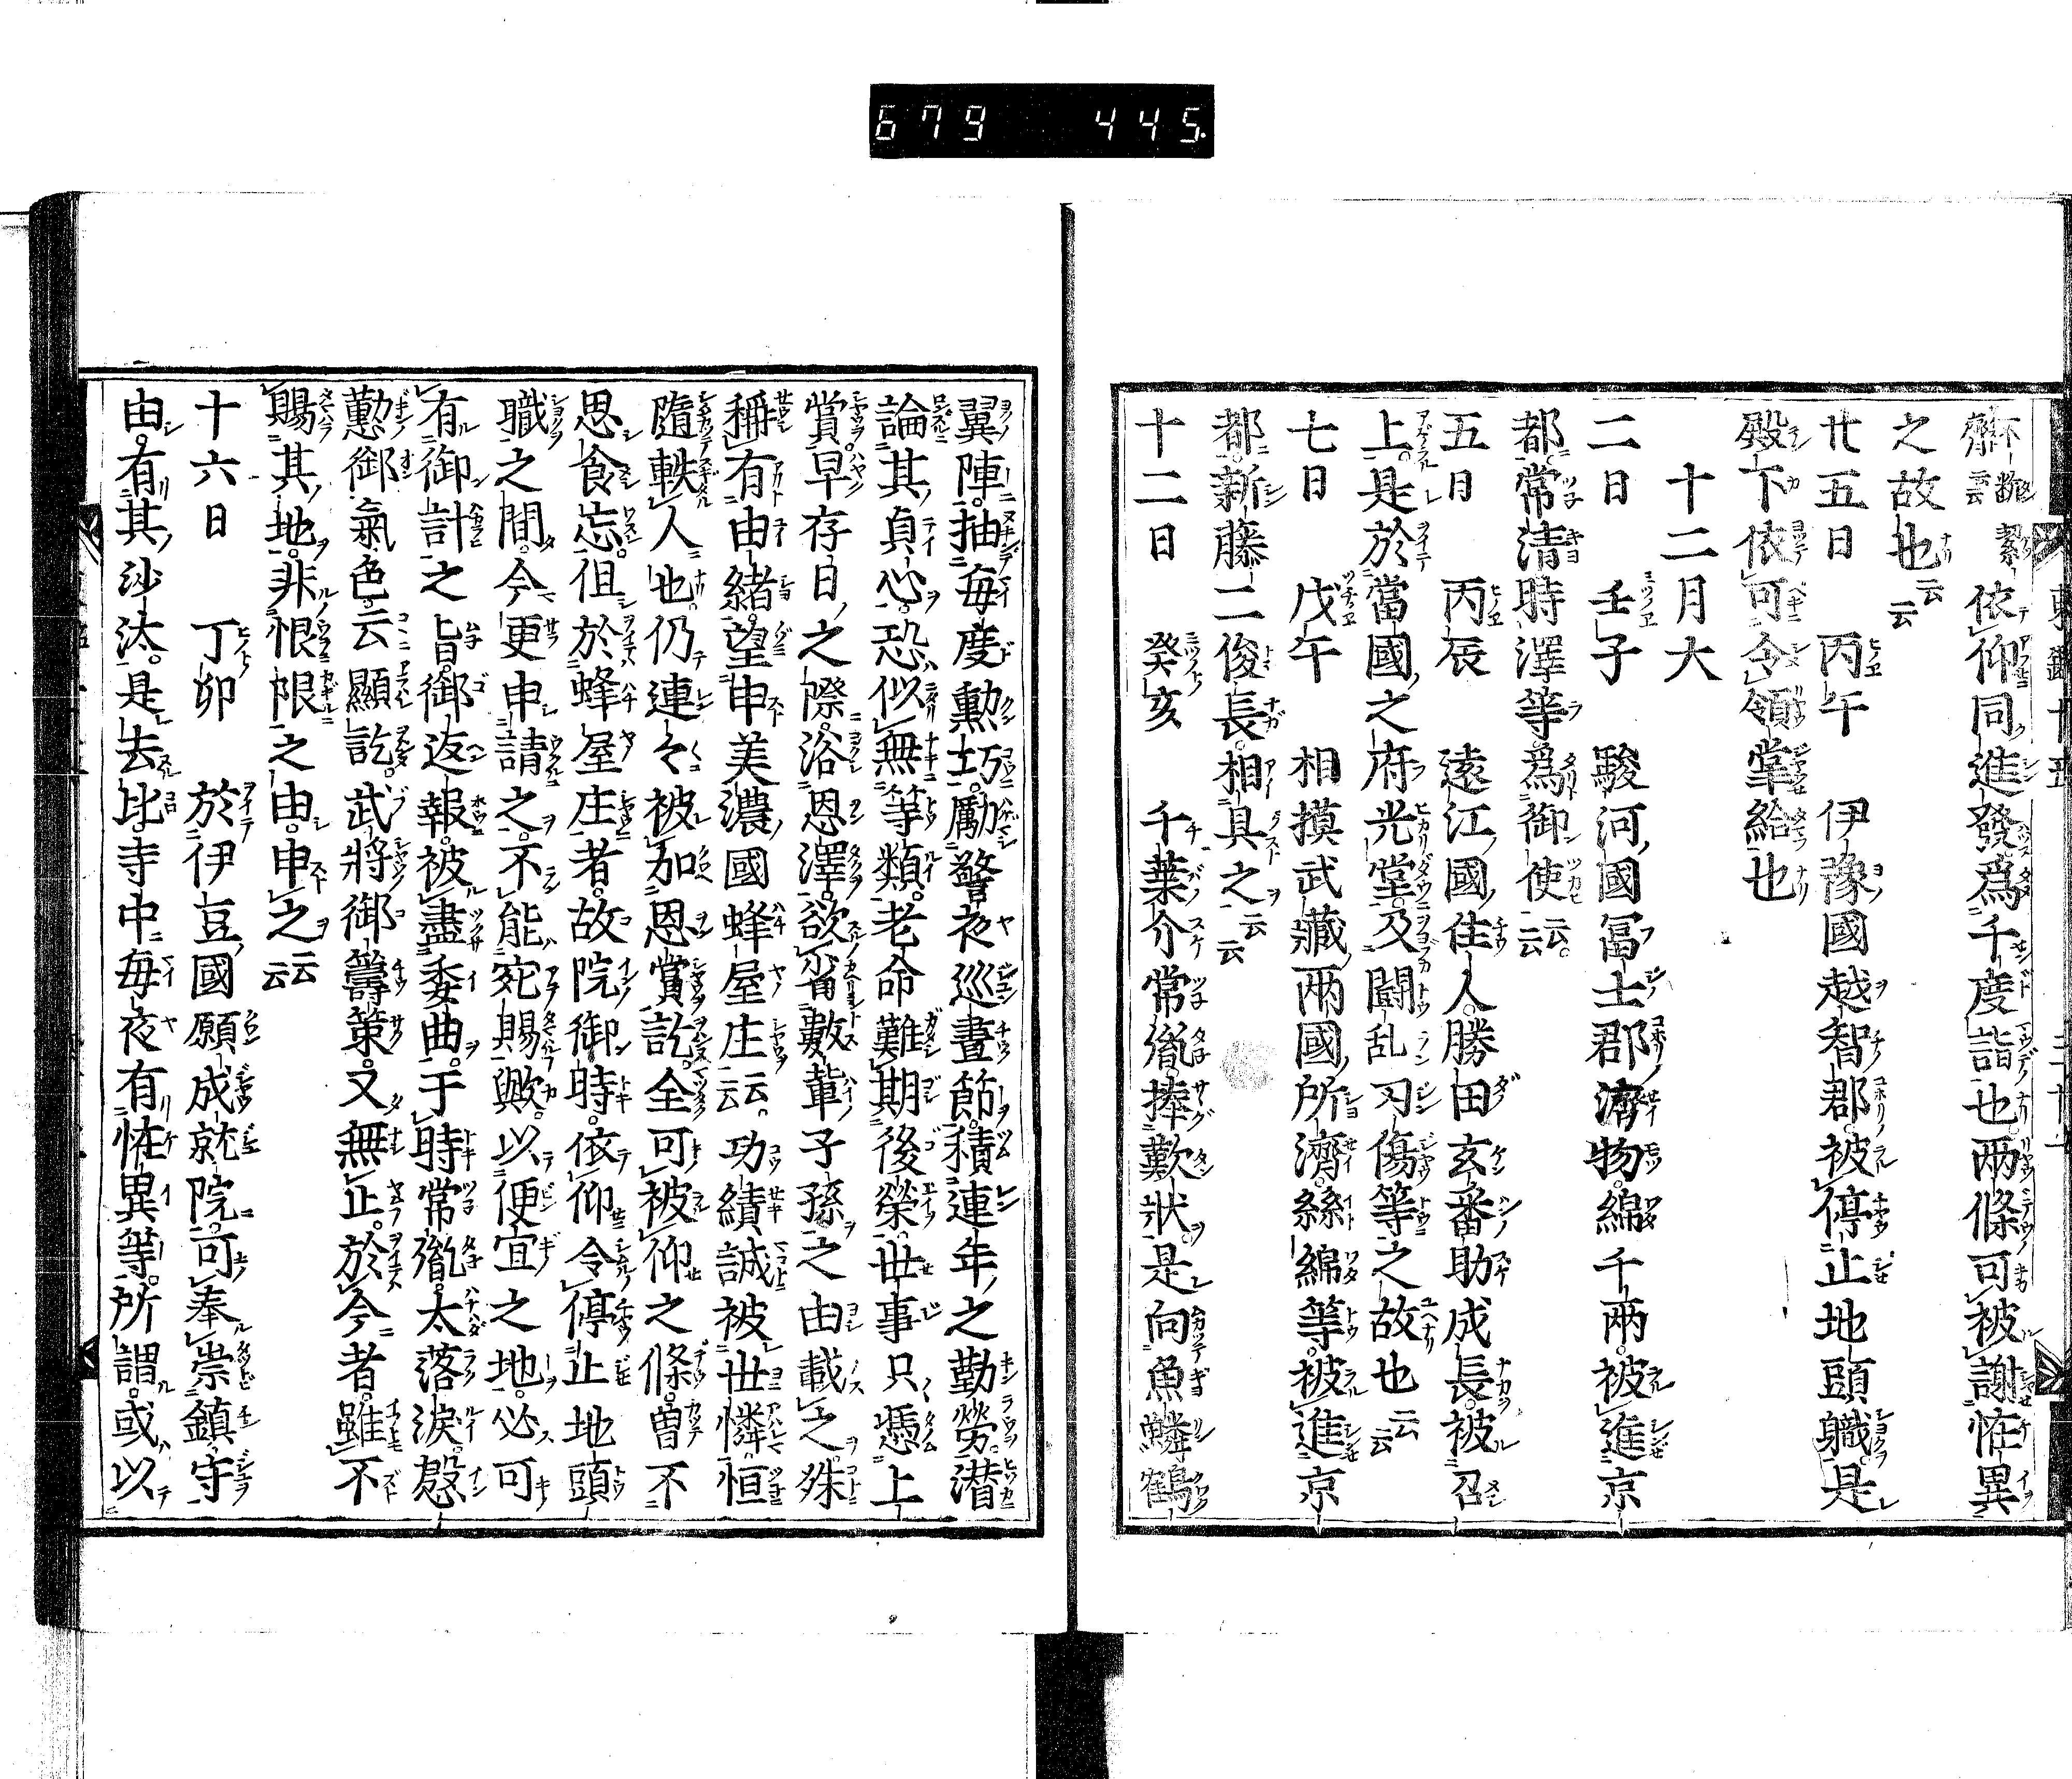 679 445.
依仰同進發爲千度詣也。兩條可被謝怪異
之故也云云
廿五日 丙午 伊豫國越智郡。被停止地頭職。是
殿下依可令領掌給也
十二月大
二日 壬子 駿河國冨士郡濟物。綿千兩。被進京
都。常清時澤等爲御使云云。
五日 丙辰 遠江國住人。勝田玄番助成長。被召
上。是於當國之府光堂。及鬪乱刃傷等之故也云云
七日 戊午 相摸武藏兩國所濟。絲綿等。被進京
都。新藤二俊長。相具之云云
十二日 癸亥 千葉介常胤捧歎狀。是向魚鱗鶴
翼陣。抽毎度勲功。勵警夜巡晝節。積連年之勤勞。潜
論其貞心。恐似無等類。老命難期後榮。世事只憑上
賞。早存日之際。浴恩澤。欲貽數輩子孫之由載之。殊
稱有由緒。望申美濃國蜂屋庄云云。功績誠被世憐。恒
隨軼人也。仍連々被加恩賞訖。全可被仰之條。曽不
思食忘。但於蜂屋庄者。故院御時。依仰令停止地頭
職之間。今更申請之。不能宛賜歟。以便宜之地。必可
有御計之旨。御返報。被盡委曲。于時常胤太落涙。慇
懃御氣色。云顯訖。武將御籌策。又無止。於今者。雖不
賜其地。非恨限之由。申之云云
十六日 丁卯 於伊豆國願成就院。可奉崇鎮守
由。有其沙汰。是去比。寺中毎夜有恠異等。所謂。或以